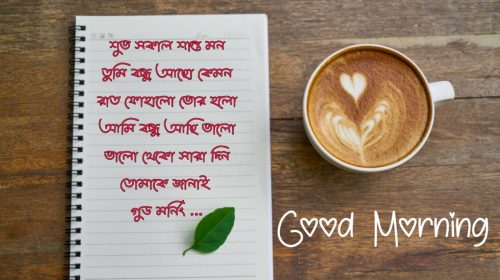 শুভ সকাল শান্ত মন
তুমি বন্ধু আছো কেমন
রাত পোহালো ভোর হলো
আমি বন্ধু আছি ভালো
ভালো থেকো সারা দিন
তোমাকে জানাই
গুড মর্নিং ...
Good Morning